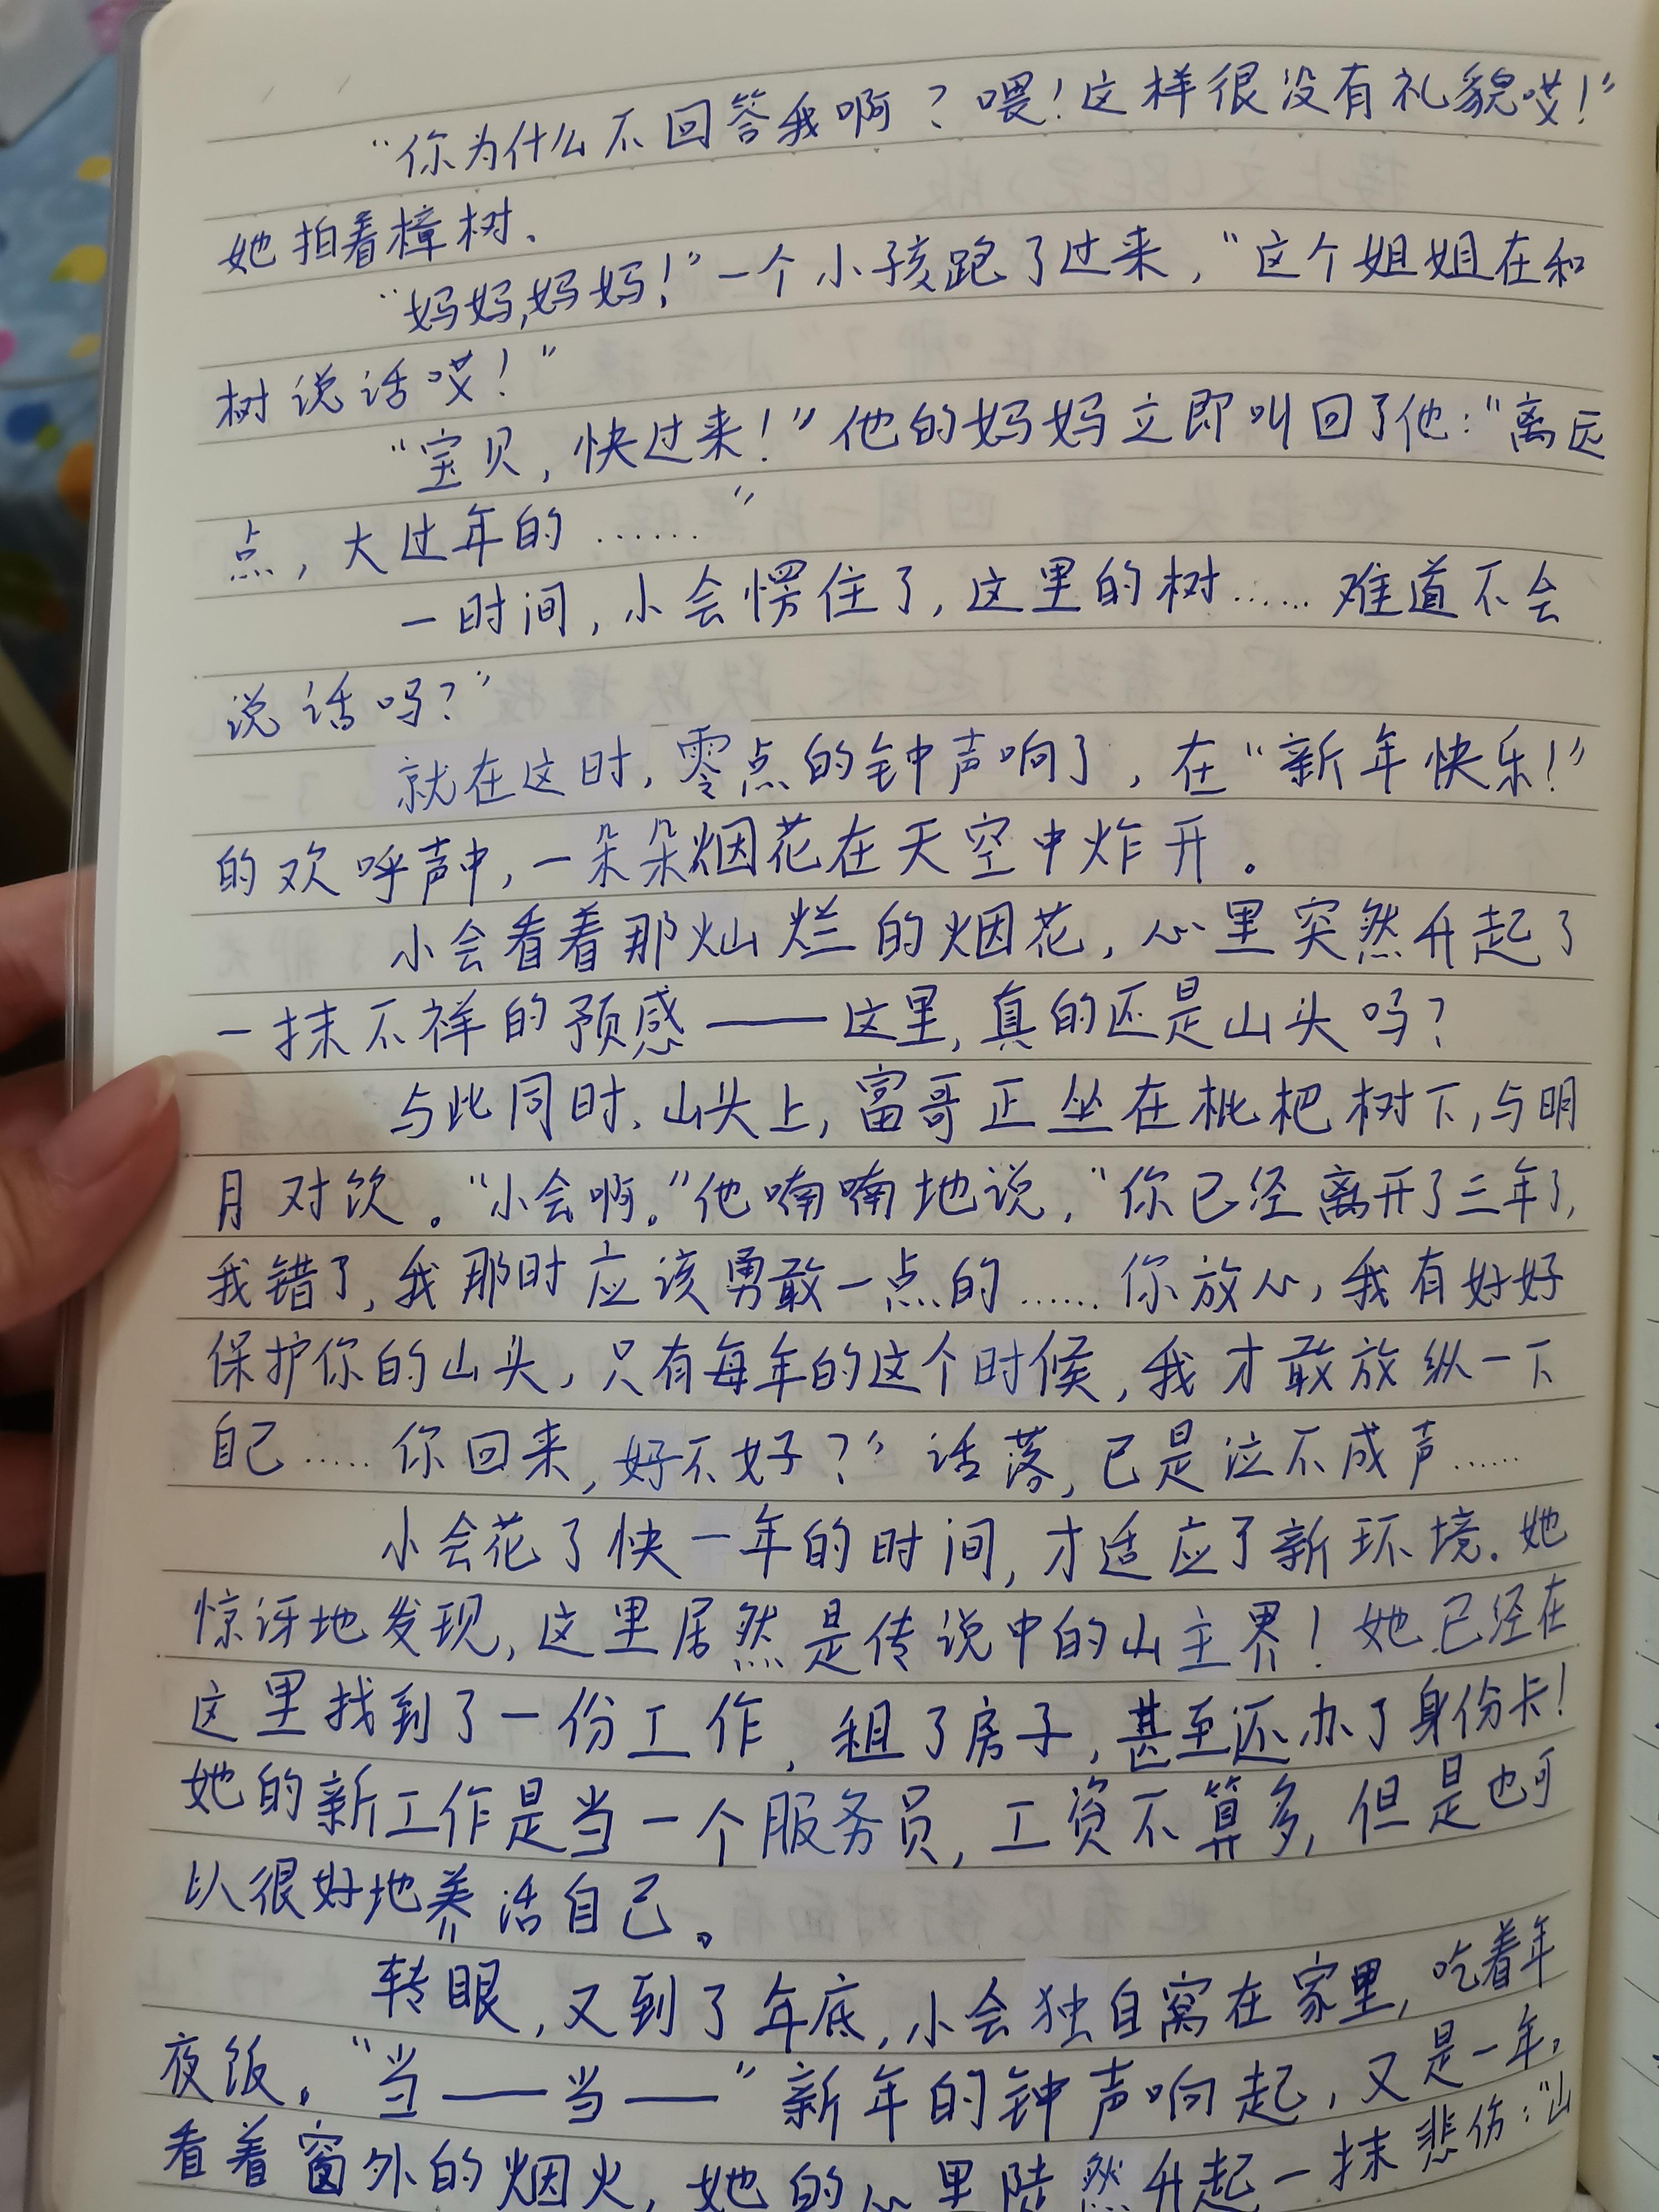 “你为什么不回答我啊？喂！这样很没有礼貌哎！”
她拍着樟树.
“妈妈,妈妈！”一个小孩跑了过来，“这个姐姐在和
树说话哎！”
“宝贝，快过来！”他的妈妈立即叫回了他：“离远
点，大过年的……”
一时间，小会愣住了，这里的树……难道不会
说话吗？”
就在这时，零点的钟声响了，在“新年快乐！”
的欢呼声中，一朵朵烟花在天空中炸开。
小会看着那灿烂的烟花，心里突然升起了
一抹不祥的预感——这里，真的还是山头吗？
与此同时，山头上，富哥正坐在枇杷树下，与明
月对饮。“小会啊。”他喃喃地说，“你已经离开了三年了，
我错了，我那时应该勇敢一点的……你放心，我有好好
保护你的山头，只有每年的这个时候，我才敢放纵一下
自己……你回来，好不好？”话落，已是泣不成声……
小会花了快一年的时间，才适应了新环境.她
惊讶地发现，这里居然是传说中的山主界！她已经在
这里找到了一份工作，租了房子，甚至还办了身份卡！
她的新工作是当一个服务员，工资不算多，但是也可
以很好地养活自己。
转眼，又到了年底，小会独自窝在家里，吃着年
夜饭。“当——当——”新年的钟声响起，又是一年，
看着窗外的烟火，她的心里陡然升起一抹悲伤：“山